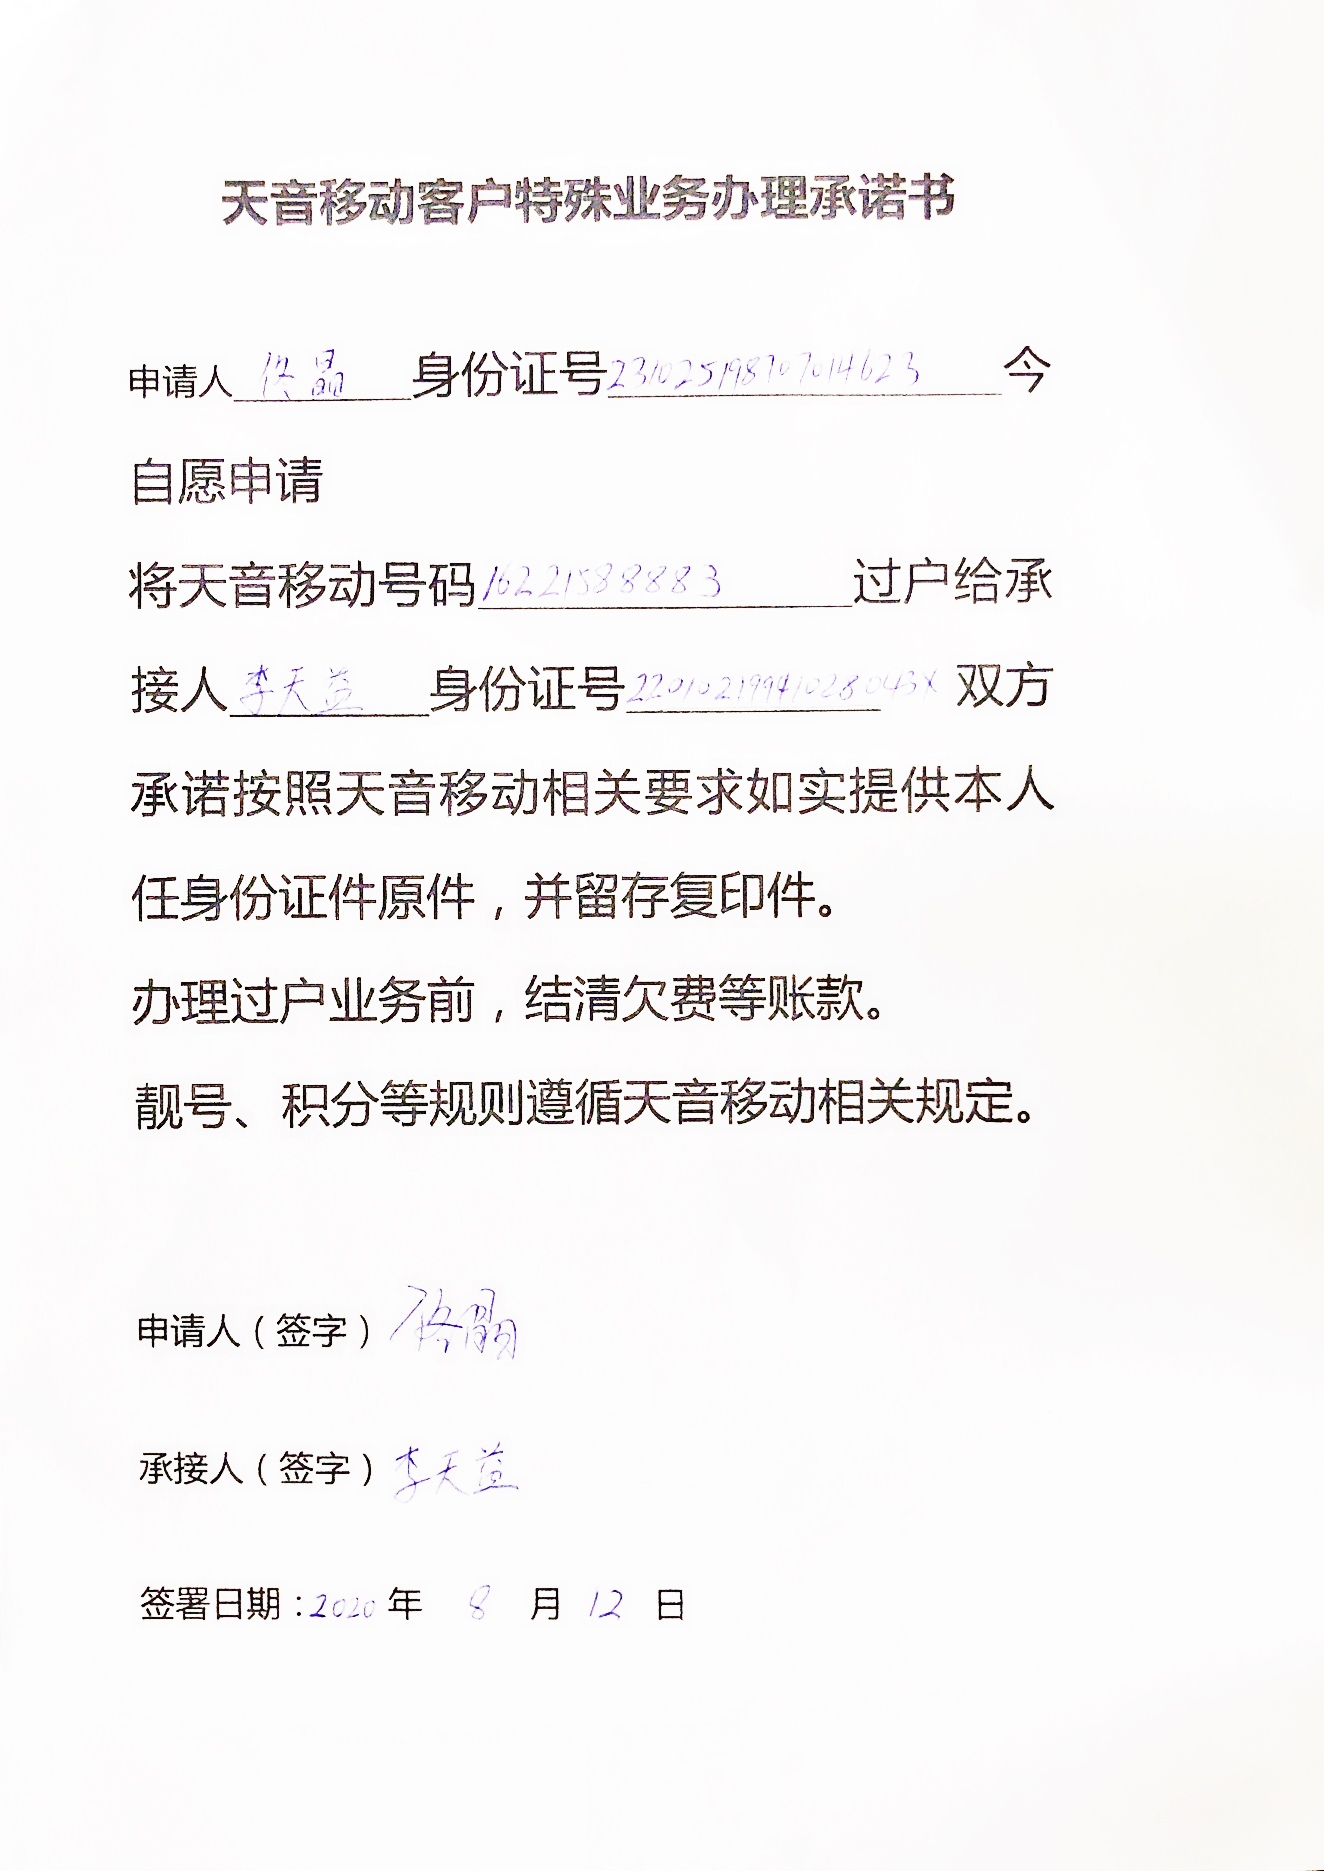 天音移动客户特殊业务办理承诺书
申请人佟晶身份证号231025198707014623今
自愿申请
将天音移动号码16221588883过户给承
接人李天益身份证号22010219941028043X双方
承诺按照天音移动相关要求如实提供本人
任身份证件原件，并留存复印件。
办理过户业务前，结清欠费等账款。
靓号、积分等规则遵循天音移动相关规定。
申请人（签字）佟晶
承接人（签字）李天益
签署日期：2020年 8 月 12 日